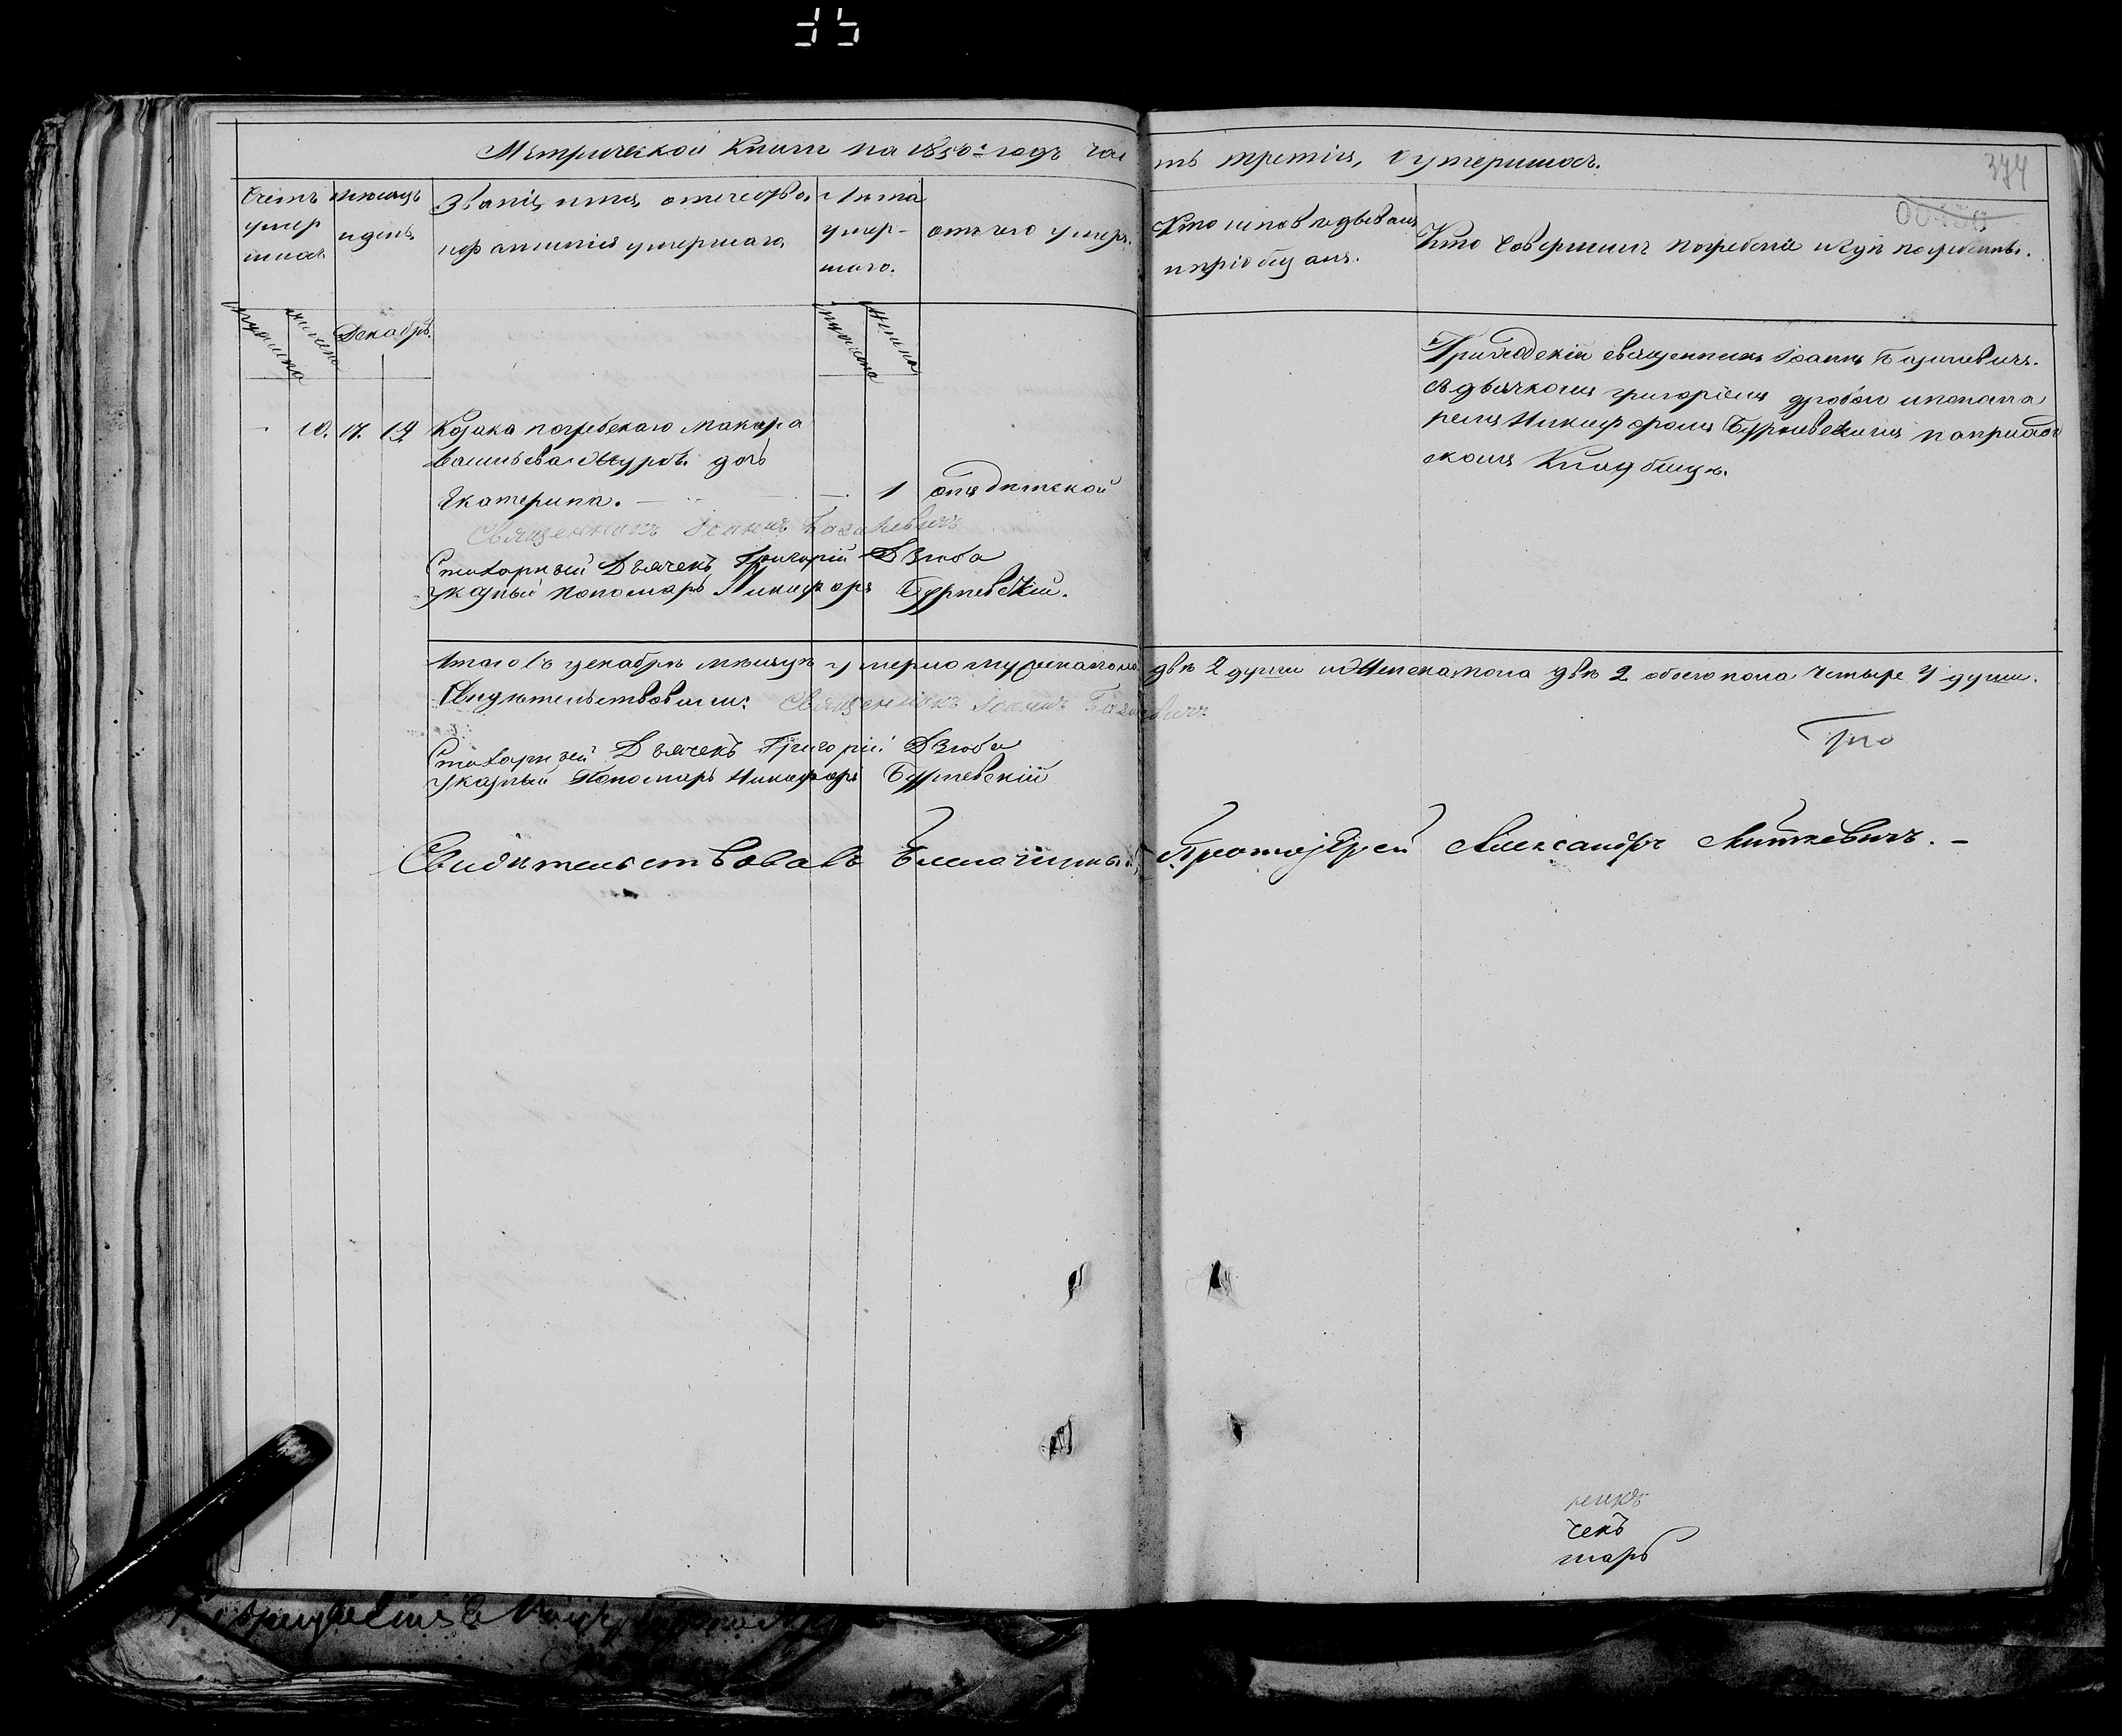 Метрической Книги на 1850й годъ часть третія, о умершихъ.
374
Счетъ умершихъ
Мѣсяцъ и день
Званіе, имя, отчество и фамилія умершаго
Лѣта умершаго.
отъ чего умеръ.
Кто исповѣдывалъ и пріобщалъ.
Кто совершилъ погребеніе и гдѣ погребены.
мужеска
женска
Декабрь.
мужеска
женска
- 10. 17. 19 Козака погребскаго Макара
Васильева дочь
Екатерина. — 1 отъ дитской
Приходскій священникъ Іоаннъ Базилевичъ
съ дьячкомъ Григоріемъ Дзюбою и понома
ремъ Никифоромъ Бурневскимъ на приход
скомъ Кладбищѣ.
Священникъ Іоаннъ Базилевичъ
Стихарный Дьячекъ Григорій Дзюба
указный пономарь Никифоръ Бурневскій.
Итого въ декабрѣ мѣсяцѣ умерло мужеска пола двѣ 2 души и Женска пола двѣ 2 обоего пола четыре 4 души.
Свидѣтельствовали: Священникъ Іоаннъ Базилевичъ
Стихарный Дьячекъ Григорій Дзюба
указный Пономарь Никифоръ Бурневскій
Свидѣтельствовалъ Благочинный, Протоіерей Александръ Миткевичъ. -
чекъ
марь